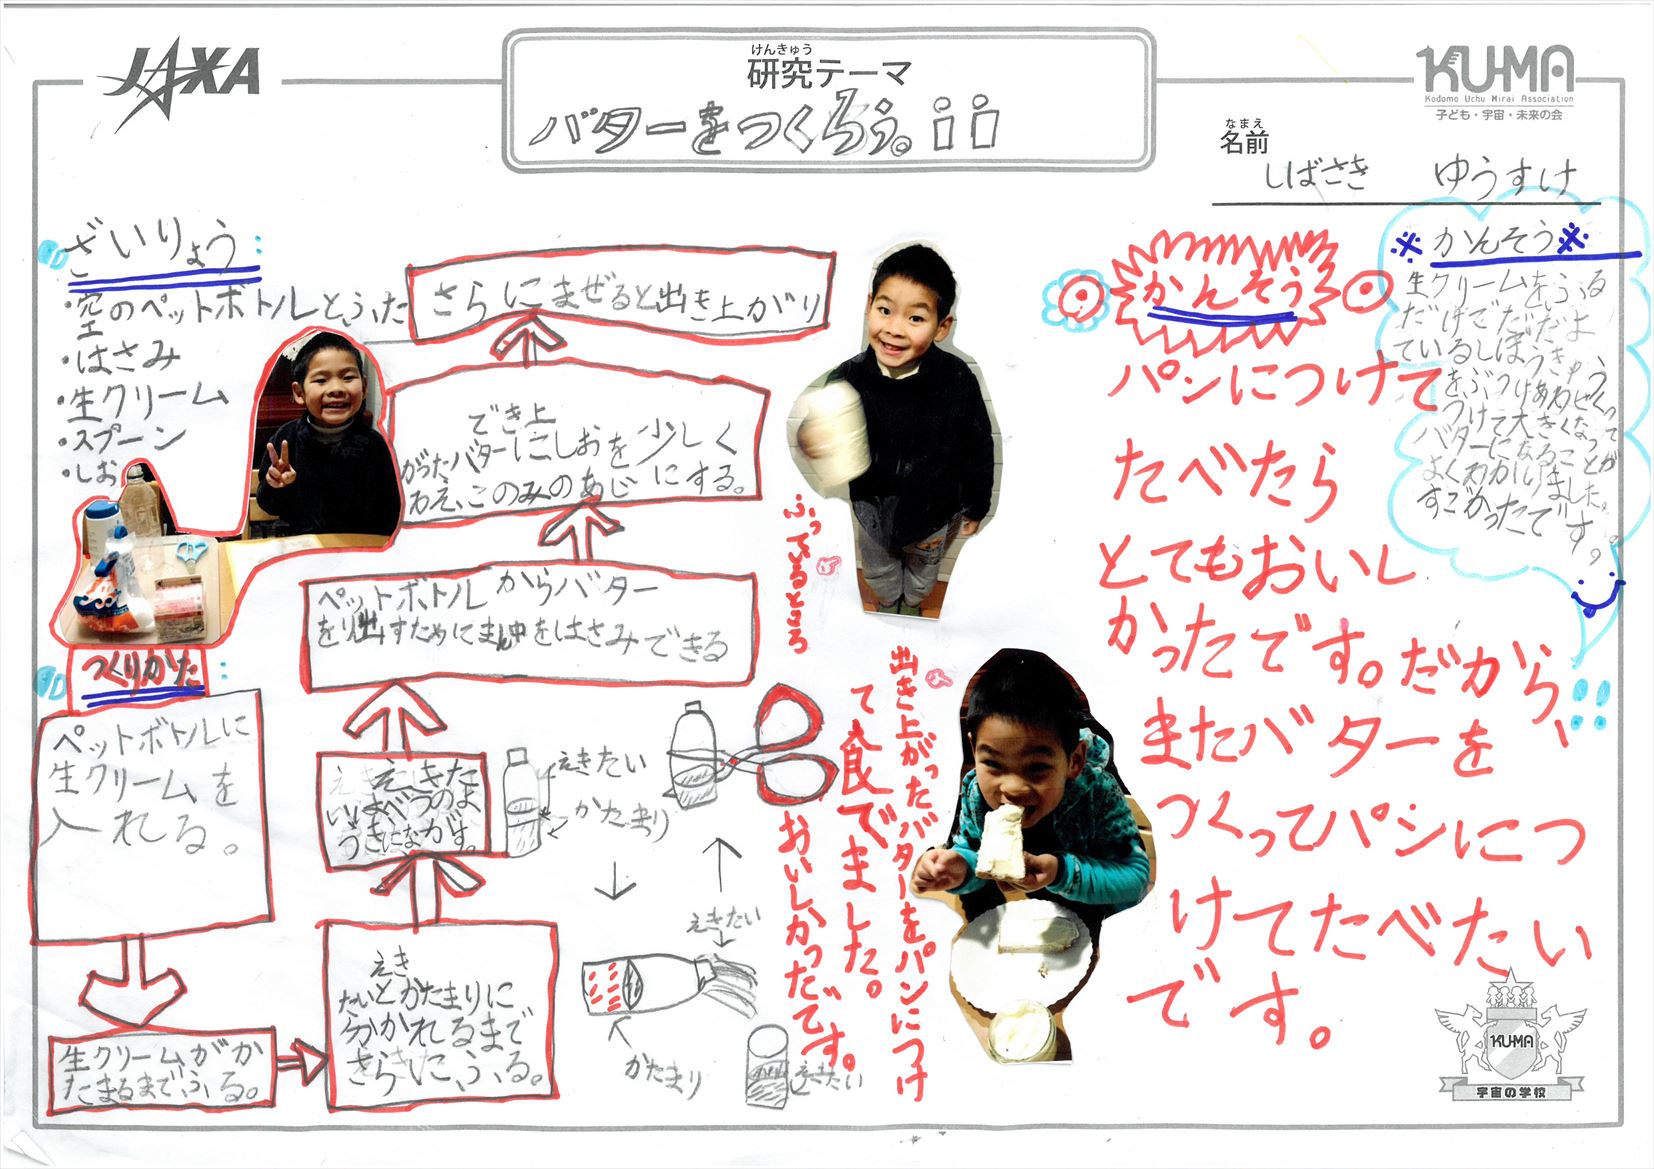 JAXA
けんきゅう
研究テーマ
バターをつくろう。!!
KU-MA
Kodomo Uchu Mirai Association
子ども・宇宙・未来の会
なまえ
名前
しばさき ゆうすけ
ざいりょう:
・空のペットボトルとふた
・はさみ
・生クリーム
・スプーン
・しお
つくりかた:
ペットボトルに
生クリームを
入れる。
生クリームがか
たまるまでふる。
えき
たいとかたまりに
分かれるまで
さらにふる。
えきた
いはべつのよ
うきにながす。
ペットボトルからバター
を出すためにまん中をはさみできる
でき上
がったバターにしおを少しく
わえ、このみのあじにする。
さらにまぜると出き上がり
えきたい
かたまり
えきたい
かたまり
えきたい
ふってるところ
出き上がったバターをパンにつけ
て食でました。
おいしかっだです。
かんそう
パンにつけて
たべたら
とてもおいし
かったです。だから、
またバターを
つくってパンにつ
けてたべたい
です。
※かんそう※
生クリームをふる
だけでただよ
ているしぼうきゅう
をぶつけあわせくっ
つけて大きくなって
バターになることが
よくわかりました。
すごかったです。
KU-MA
宇宙の学校